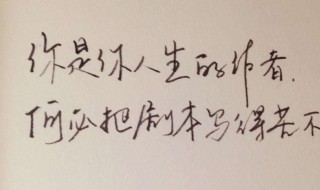 你是你人生的作者.
何必把剧本写得苦不